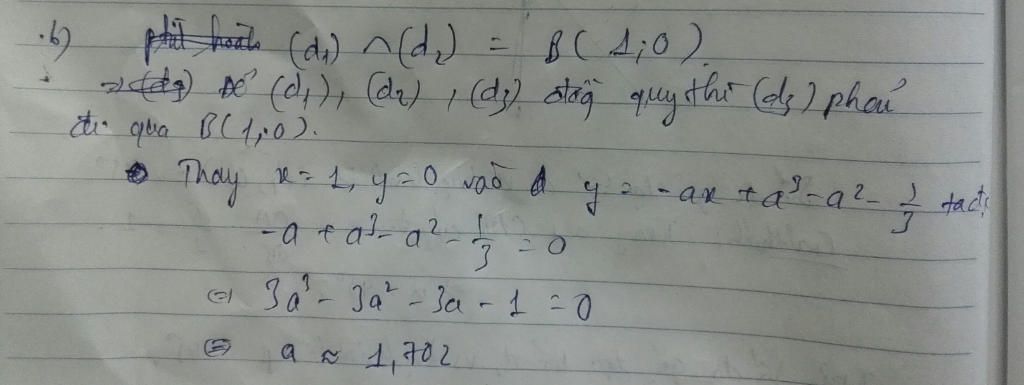 b) (d₁) ∩ (d₂) = B(1;0).
Để (d₁), (d₂), (d₃) đồng quy thì (d₃) phải
đi qua B(1;0).
Thay x = 1, y = 0 vào y = -ax + a³ - a² - 1/3 ta đc
-a + a³ - a² - 1/3 = 0
⇔ 3a³ - 3a² - 3a - 1 = 0
⇔ a ≈ 1,702